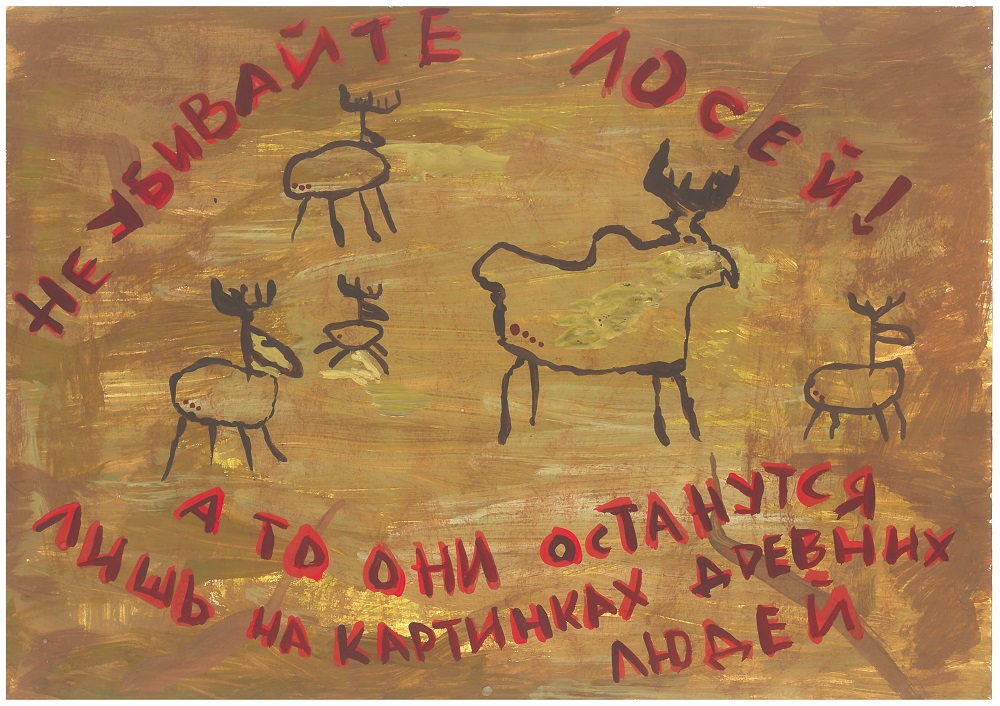 НЕ УБИВАЙТЕ ЛОСЕЙ!
А ТО ОНИ ОСТАНУТСЯ
ЛИШЬ НА КАРТИНКАХ ДРЕВНИХ
ЛЮДЕЙ